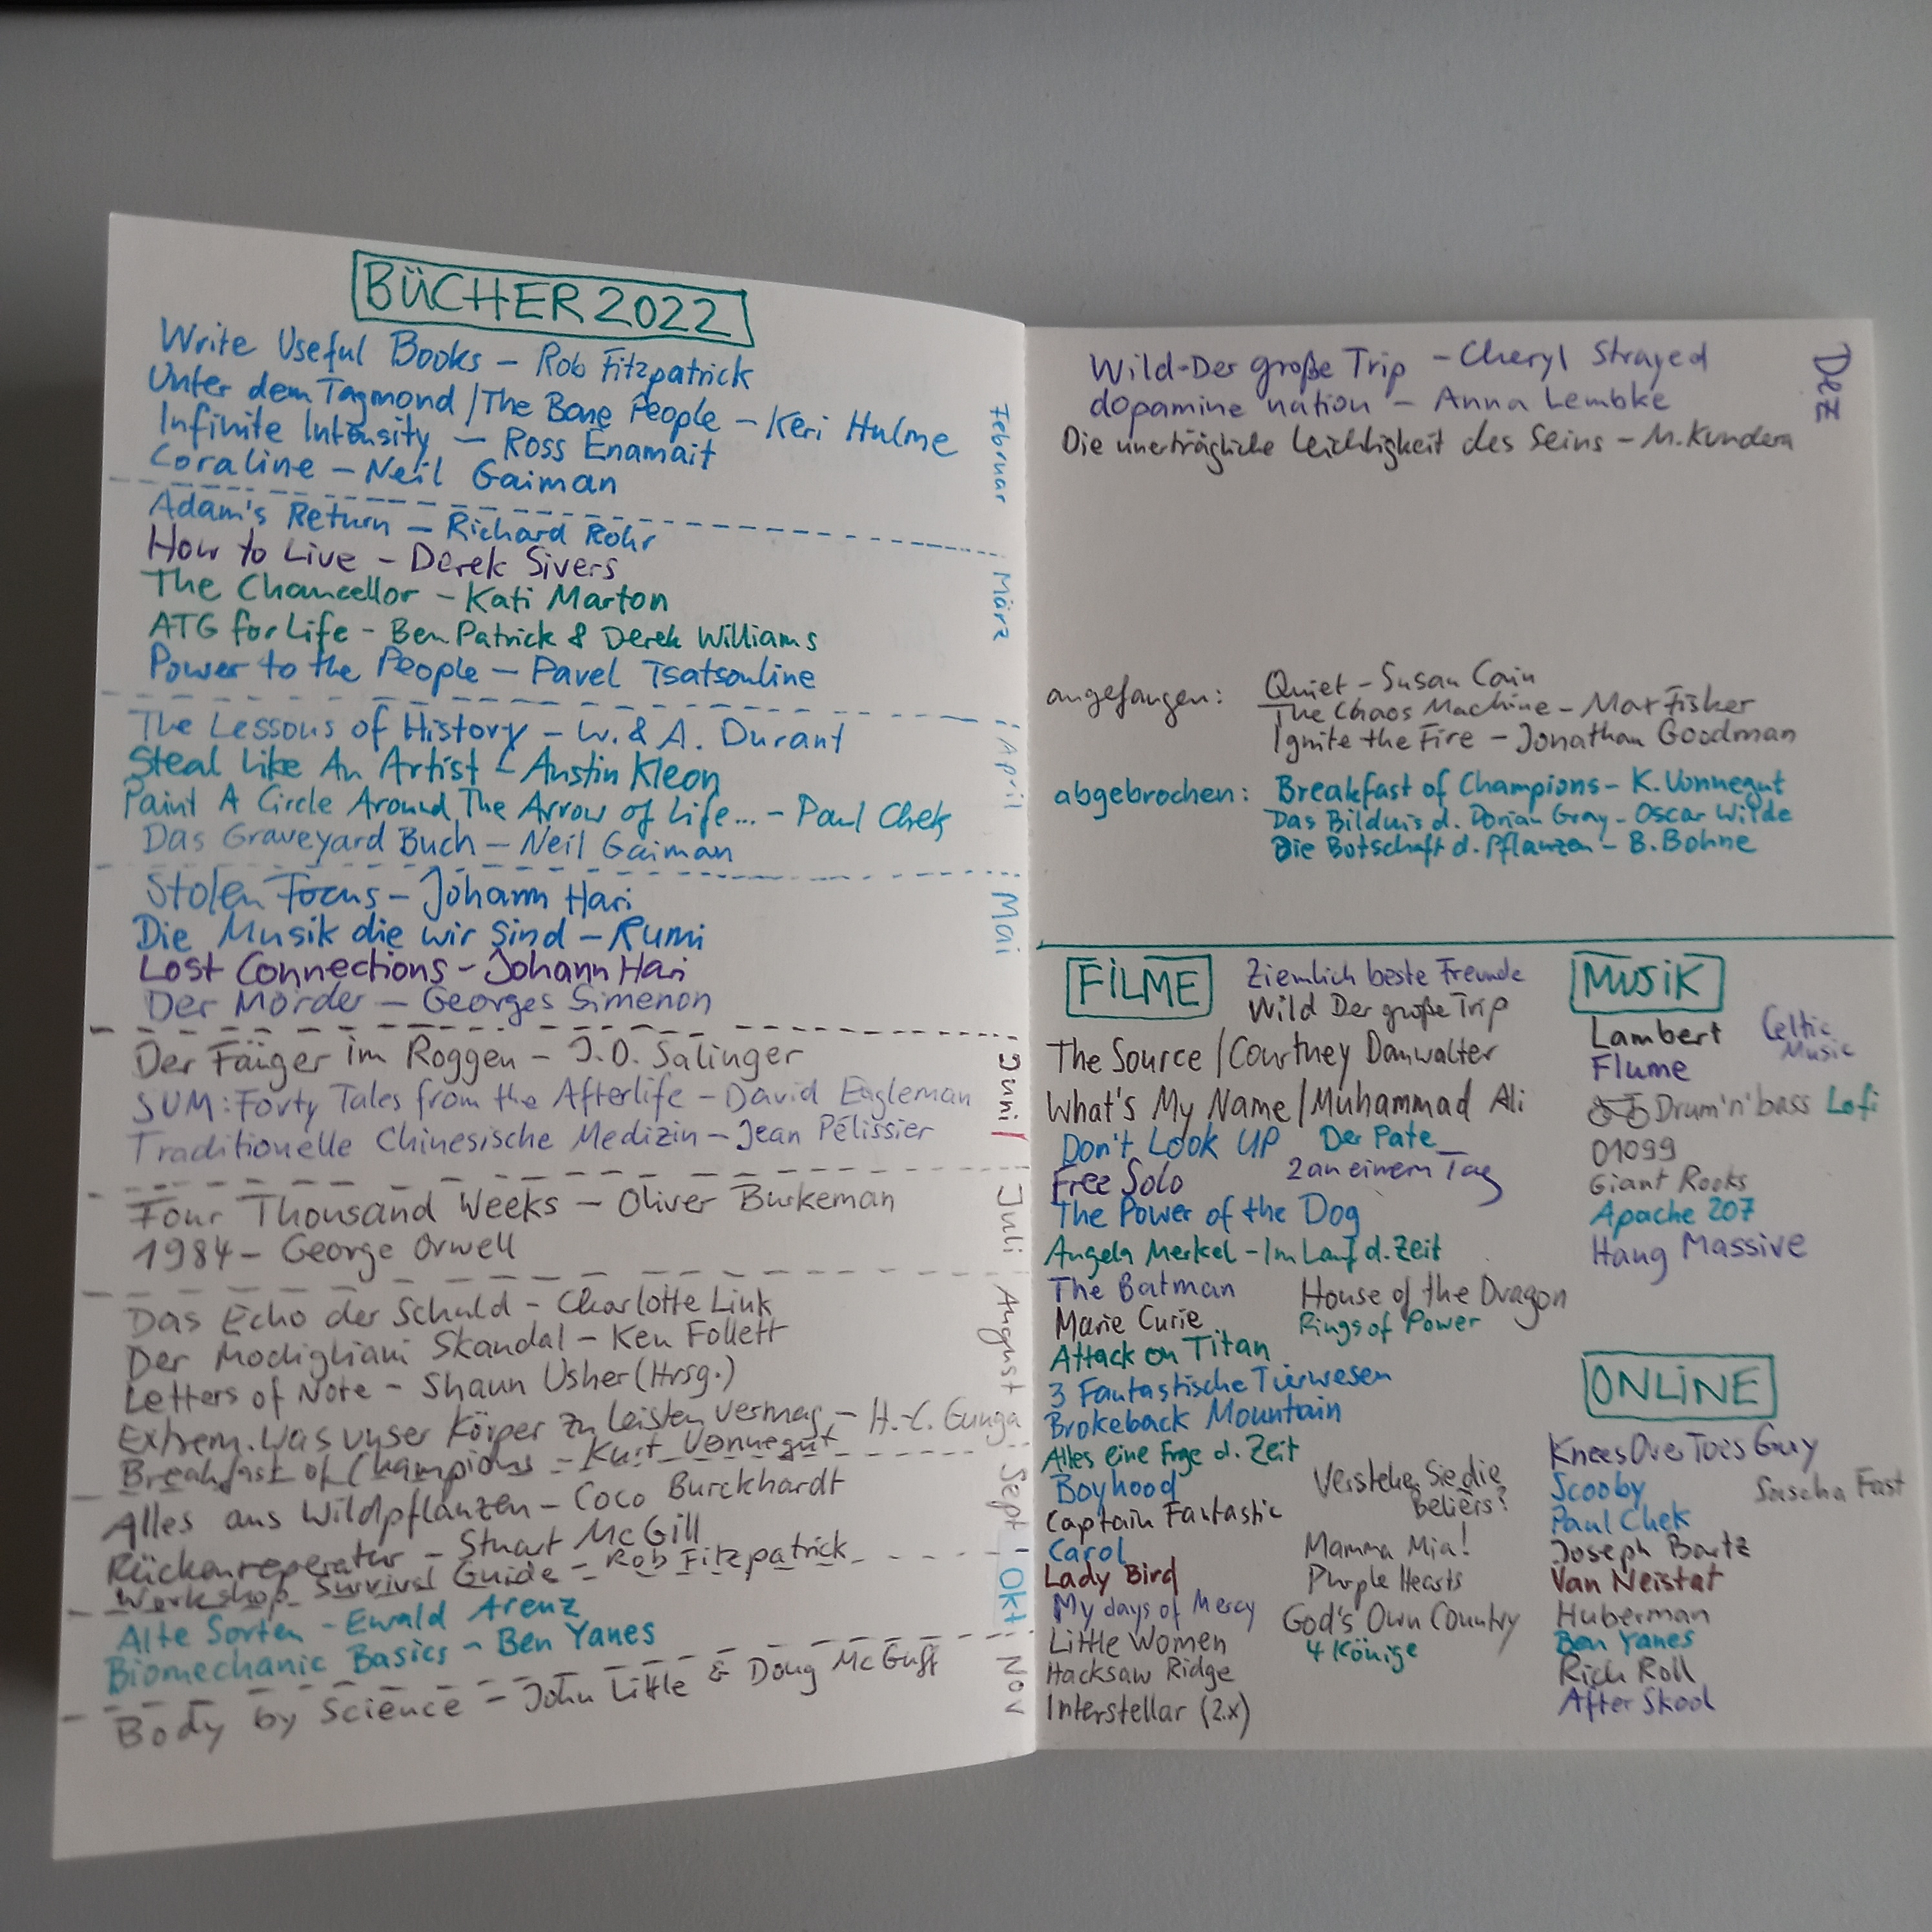 BÜCHER 2022
Write Useful Books – Rob Fitzpatrick
Unter dem Tagmond / The Bone People – Keri Hulme
Infinite Intensity – Ross Enamait
Coraline – Neil Gaiman
Februar
Adam's Return – Richard Rohr
How to Live – Derek Sivers
The Chancellor – Kati Marton
ATG for Life – Ben Patrick & Derek Williams
Power to the People – Pavel Tsatsouline
März
The Lessons of History – W. & A. Durant
Steal Like An Artist – Austin Kleon
Paint A Circle Around The Arrow of Life... – Paul Chek
Das Graveyard Buch – Neil Gaiman
April
Stolen Focus – Johann Hari
Die Musik die wir sind – Rumi
Lost Connections – Johann Hari
Der Mörder – Georges Simenon
Mai
Der Fänger im Roggen – J.D. Salinger
SUM: Forty Tales from the Afterlife – David Eagleman
Traditionelle Chinesische Medizin – Jean Pélissier
Juni
Four Thousand Weeks – Oliver Burkeman
1984 – George Orwell
Juli
Das Echo der Schuld – Charlotte Link
Der Modigliani Skandal – Ken Follett
Letters of Note – Shaun Usher (Hrsg.)
Extrem. Was unser Körper zu leisten vermag – H.-C. Gunga
Breakfast of Champions – Kurt Vonnegut
August
Alles aus Wildpflanzen – Coco Burckhardt
Rückenreperatur – Stuart McGill
Workshop Survival Guide – Rob Fitzpatrick
Sept
Alte Sorten – Ewald Arenz
Biomechanic Basics – Ben Yanes
Okt
Body by Science – John Little & Doug McGuff
Nov
Wild - Der große Trip – Cheryl Strayed
dopamine nation – Anna Lembke
Die unerträgliche Leichtigkeit des Seins – M. Kundera
Dez
angefangen: Quiet – Susan Cain
The Chaos Machine – Max Fisker
Ignite the Fire – Jonathan Goodman
abgebrochen: Breakfast of Champions – K. Vonnegut
Das Bildnis d. Dorian Gray – Oscar Wilde
Die Botschaft d. Pflanzen – B. Bohne
FILME
Ziemlich beste Freunde
Wild Der große Trip
The Source / Courtney Dauwalter
What's My Name / Muhammad Ali
Don't Look UP
Der Pate
Free Solo
2 an einem Tag
The Power of the Dog
Angela Merkel – Im Lauf d. Zeit
The Batman
House of the Dragon
Marie Curie
Rings of Power
Attack on Titan
3 Fantastische Tierwesen
Brokeback Mountain
Alles eine Frge d. Zeit
Boyhood
Verstehen Sie die Béliers?
Captain Fantastic
Carol
Mamma Mia!
Lady Bird
Purple Hearts
My days of Mercy
God's Own Country
Little Women
4 Könige
Hacksaw Ridge
Interstellar (2x)
MUSIK
Lambert
Celtic Music
Flume
Drum'n'bass
Lofi
01099
Giant Rooks
Apache 207
Hang Massive
ONLINE
KneesOverToes Guy
Scooby
Sascha Fast
Paul Chek
Joseph Bartz
Van Neistat
Huberman
Ben Yanes
Rich Roll
After Skool